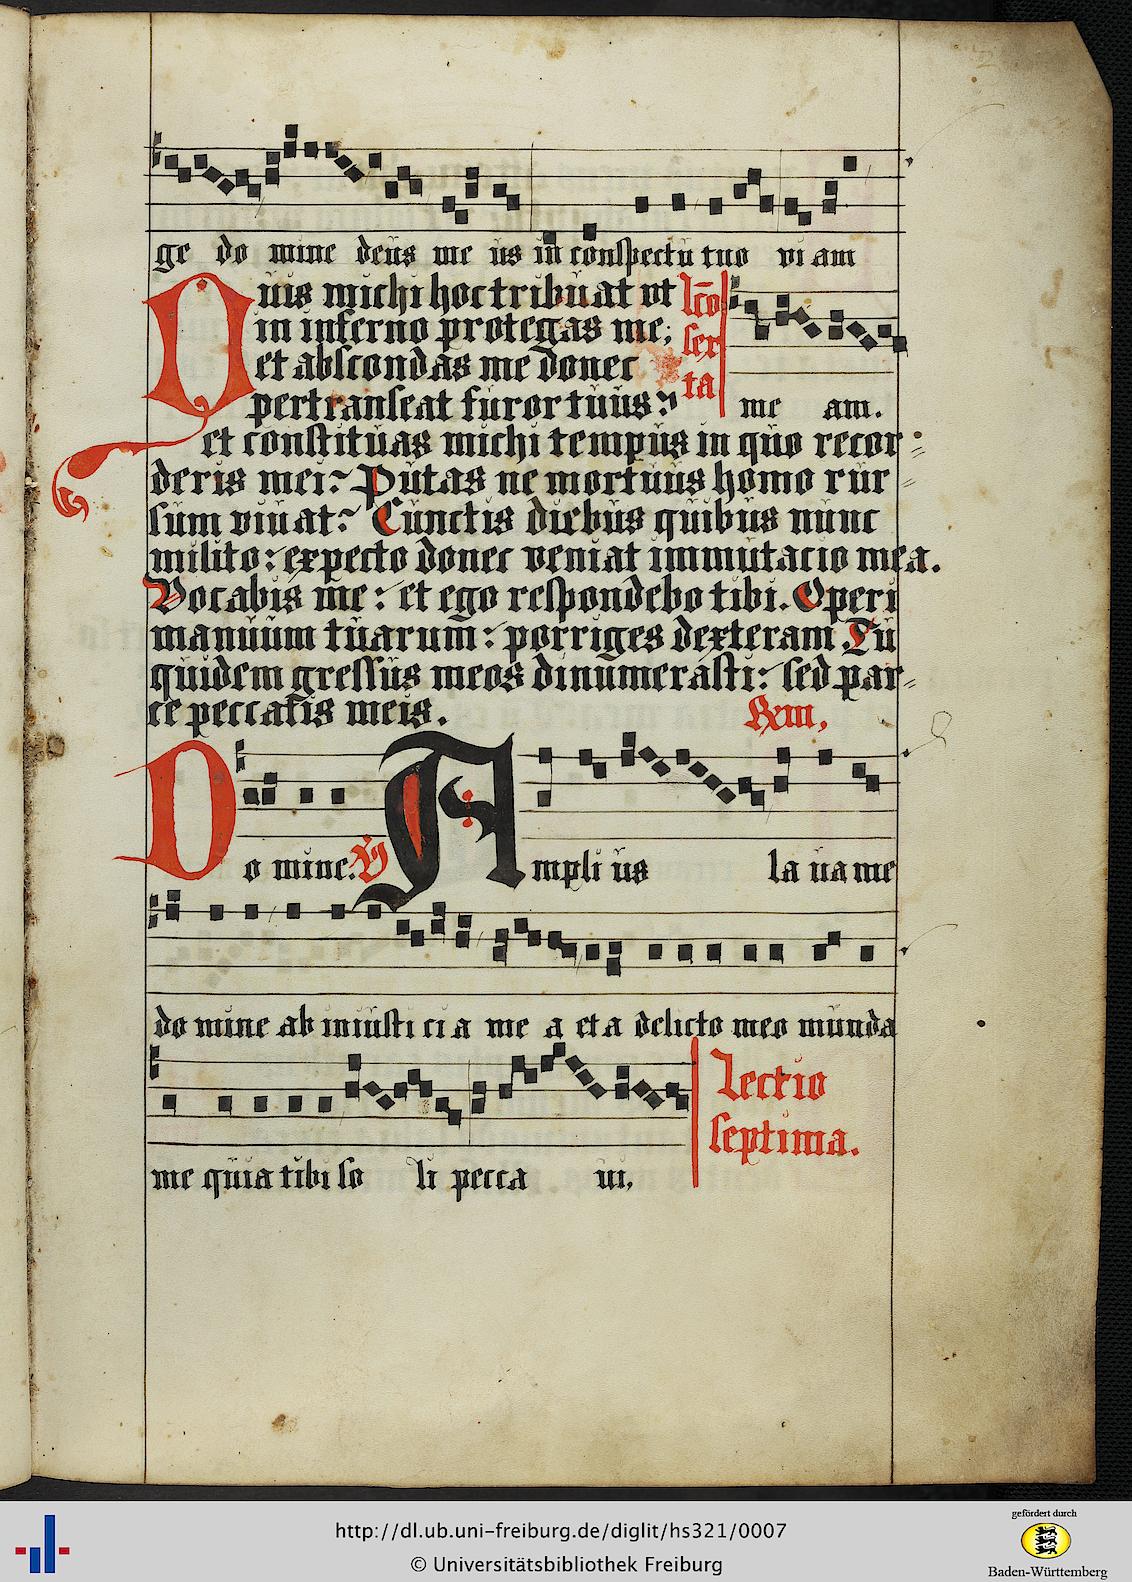 ge do mine deus me us in conspectu tuo vi am
Quis michi hoc tribuat ut lc̄o
in inferno protegas me; sex
et abscondas me donec ta
pertranseat furor tuus? me am.
et constituas michi tempus in quo recor
deris mei? Putas ne mortuus homo rur
sum vivat? Cunctis diebus quibus nunc
milito: expecto donec veniat immutacio mea.
Vocabis me: et ego respondebo tibi. Operi
manuum tuarum: porriges dexteram Tu
quidem gressus meos dinumerasti: sed par
ce peccatis meis.
Do mine. Ampli us la va me
do mine ab iniusti ci a me a et a delicto meo munda
me quia tibi so li pecca ui,
Lectio
septima.
http://dl.ub.uni-freiburg.de/diglit/hs321/0007
© Universitätsbibliothek Freiburg
gefördert durch
Baden-Württemberg